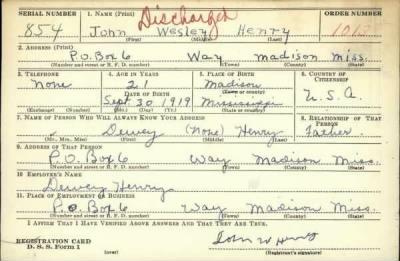 SERIAL NUMBER 1. NAME (Print) Discharged ORDER NUMBER
854 John Wesley Henry 1015
(First) (Middle) (Last)
2. ADDRESS (Print)
P.O. Box 6 Way Madison Miss.
(Number and street or R. F. D. number) (Town) (County) (State)
3. TELEPHONE 4. AGE IN YEARS 5. PLACE OF BIRTH 6. COUNTRY OF CITIZENSHIP
None 21 Madison
DATE OF BIRTH (Town or county)
Sept. 30 1919 Mississippi U.S.A.
(Exchange) (Number) (Mo.) (Day) (Yr.) (State or country)
7. NAME OF PERSON WHO WILL ALWAYS KNOW YOUR ADDRESS 8. RELATIONSHIP OF THAT PERSON
Dewey (None) Henry Father
(Mr., Mrs., Miss) (First) (Middle) (Last)
9. ADDRESS OF THAT PERSON
P.O. Box 6 Way Madison Miss.
(Number and street or R. F. D. number) (Town) (County) (State)
10 EMPLOYER'S NAME
Dewey Henry
11. PLACE OF EMPLOYMENT OR BUSINESS
P.O. Box 6 Way Madison Miss.
(Number and street or R. F. D. number) (Town) (County) (State)
I AFFIRM THAT I HAVE VERIFIED ABOVE ANSWERS AND THAT THEY ARE TRUE.
REGISTRATION CARD
D. S. S. Form 1 John W Henry
(Registrant's signature)